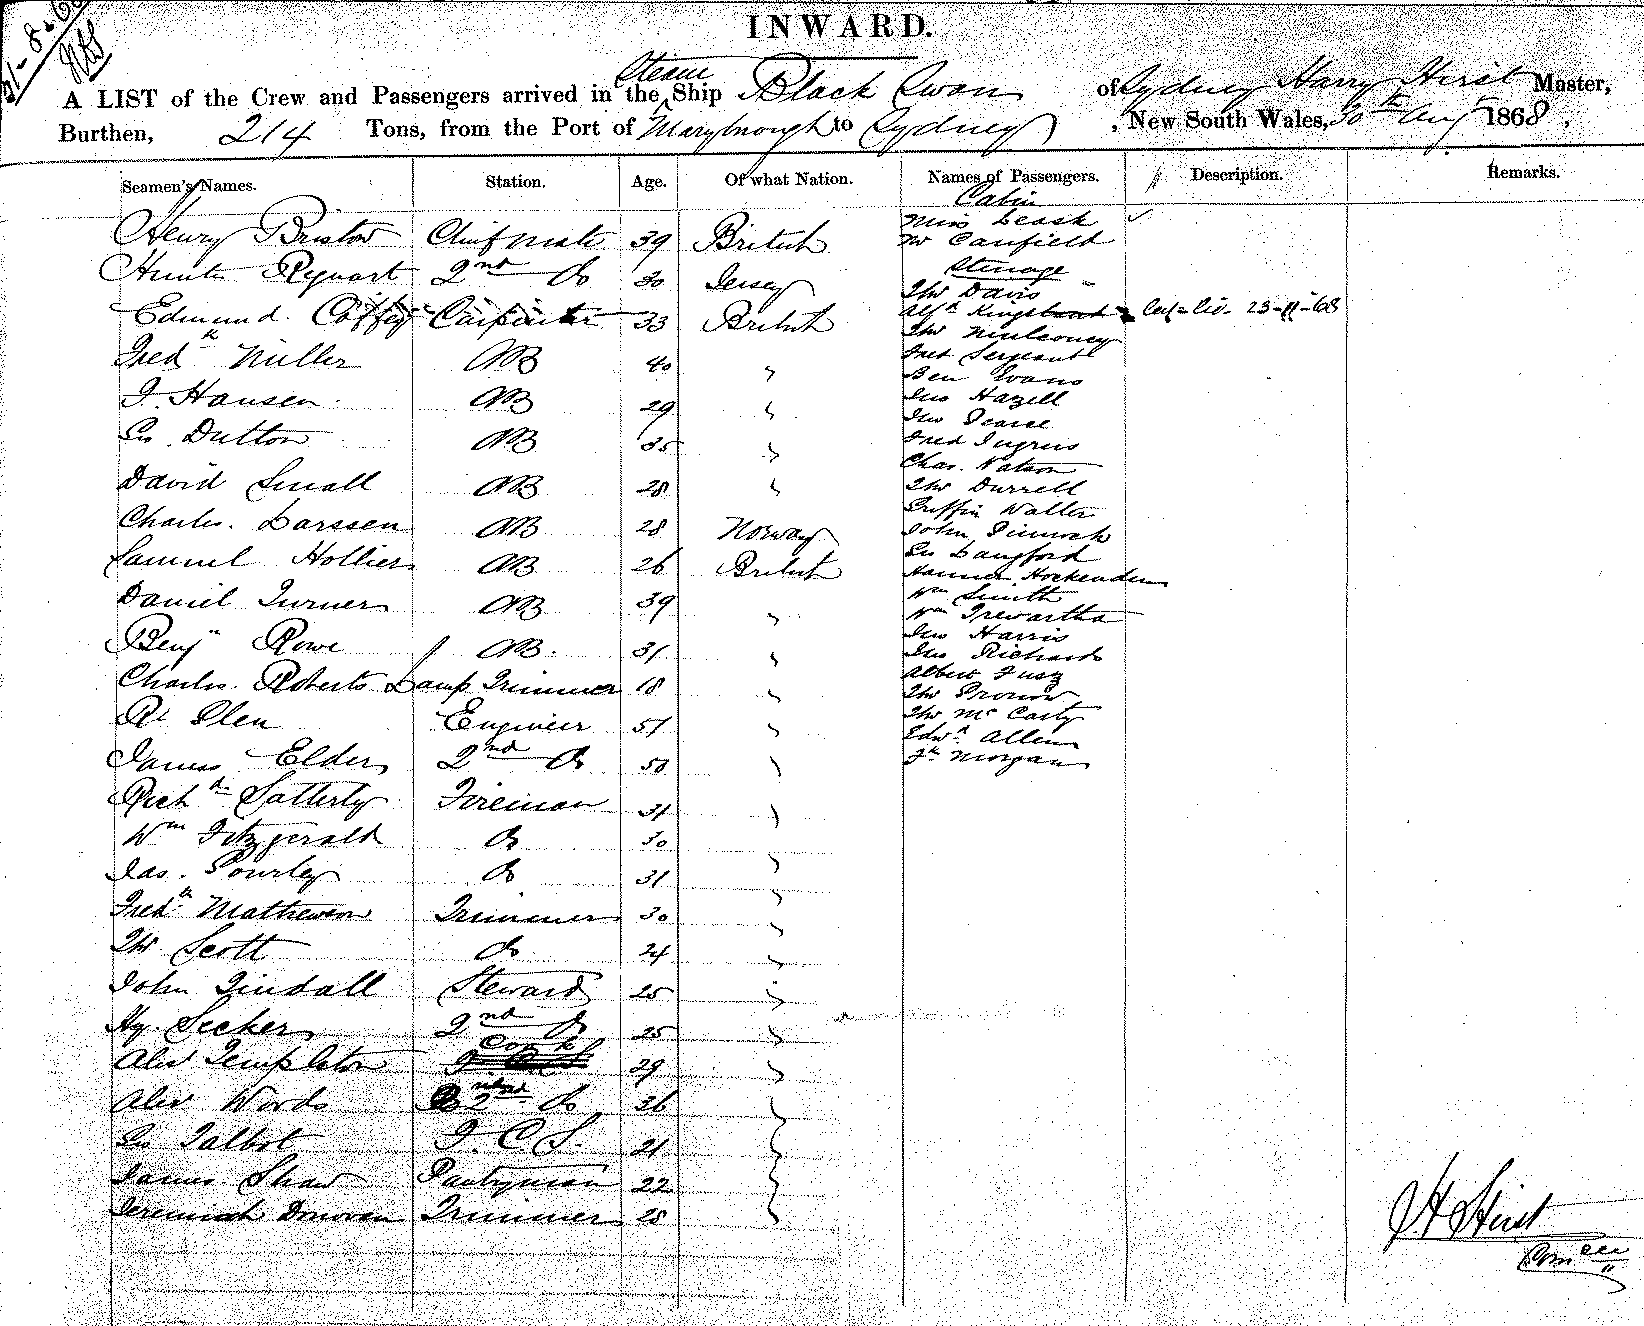 31-8-68
INWARD.
A LIST of the Crew and Passengers arrived in the Steam Ship Black Swan of Sydney Harry Hirst Master,
Burthen, 214 Tons, from the Port of Maryborough to Sydney, New South Wales, 30th Aug 1868,
Seamen's Names. Station. Age. Of what Nation. Names of Passengers. Description. Remarks.
Cabin
Miss Leask
Henry Bristow Chief mate 39 British
Mr Canfield
Steerage
2nd Do 30 Jersey
Thos Davis
Edmund Coffey Carpenter 33 British
Alfd 23-11-68
Thos
Fredk Miller AB 40 "
Fred Sergeant
Ben Evans
J. Hansen AB 29 "
Jno Hazell
Jno Pearce
Geo. Dutton AB 35 "
Fred
Chas. Watson
David Small AB 28 "
Thos Durrell
Griffin Walter
Charles Larssen AB 28 Norway
John
Geo Langford
Samuel Hollier AB 26 British
Hockenden
Wm Smith
Daniel Turner AB 39 "
Wm Trewartha
Jno Harris
Benjn Rowe AB. 31 "
Jno Richards
Albert
Charles Roberts Lamp Trimmer 18 "
Thos
Rt Glen Engineer 51 "
Thos McCarty
Edwd Allen
James Elder 2nd Do 50 "
Jno Morgan
Richd Satterly Fireman 31 "
Wm Fitzgerald Do 30 "
Jas. Gourley Do 31 "
Fredk Mathewson Trimmer 30 "
Thos Scott Do 24 "
John Tindall Steward 25 "
Hy. Secker 2nd Do 25 "
Alex Templeton Cook 29 "
Alex Woods 2nd Do 26 "
Geo Talbot F. C. S. 21 "
James Shaw Pantryman 22 "
Jeremiah Donovan Trimmer 28 "
H Hirst